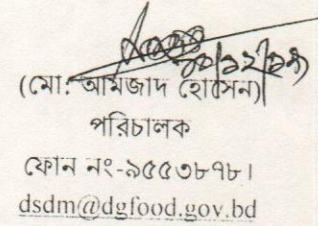 (মো: আমজাদ হোসেন)
পরিচালক
ফোন নং-৯৫৫৩৮৭৮।
dsdm@dgfood.gov.bd